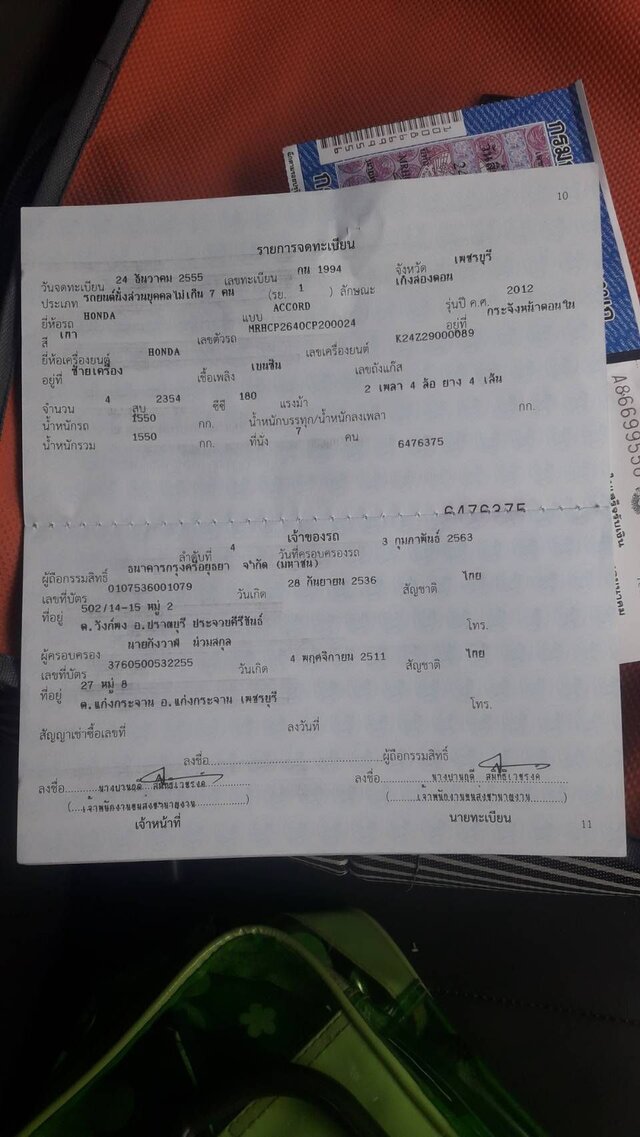 10
รายการจดทะเบียน
วันจดทะเบียน 24 ธันวาคม 2555 เลขทะเบียน กน 1994 จังหวัด เพชรบุรี
ประเภท รถยนต์นั่งส่วนบุคคลไม่เกิน 7 คน (รย. 1 ) ลักษณะ เก๋งสองตอน
ยี่ห้อรถ HONDA แบบ ACCORD รุ่นปี ค.ศ. 2012
สี เทา เลขตัวรถ MRHCP2640CP200024 อยู่ที่ กระจังหน้าตอนใน
ยี่ห้อเครื่องยนต์ HONDA เลขเครื่องยนต์ K24Z29000089
อยู่ที่ ซ้ายเครื่อง เชื้อเพลิง เบนซิน เลขถังแก๊ส
จำนวน 4 สูบ 2354 ซีซี 180 แรงม้า 2 เพลา 4 ล้อ ยาง 4 เส้น
น้ำหนักรถ 1550 กก. น้ำหนักบรรทุก/น้ำหนักลงเพลา กก.
น้ำหนักรวม 1550 กก. ที่นั่ง 7 คน 6476375
6476375
เจ้าของรถ
ลำดับที่ 4 วันที่ครอบครองรถ 3 กุมภาพันธ์ 2563
ผู้ถือกรรมสิทธิ์ ธนาคารกรุงศรีอยุธยา จำกัด (มหาชน)
เลขที่บัตร 0107536001079 วันเกิด 28 กันยายน 2536 สัญชาติ ไทย
ที่อยู่ 502/14-15 หมู่ 2
ต.วังก์พง อ.ปราณบุรี ประจวบคีรีขันธ์ โทร.
ผู้ครอบครอง นายกังวาฬ น่วมสกุล
เลขที่บัตร 3760500532255 วันเกิด 4 พฤศจิกายน 2511 สัญชาติ ไทย
ที่อยู่ 27 หมู่ 8
ต.แก่งกระจาน อ.แก่งกระจาน เพชรบุรี โทร.
สัญญาเช่าซื้อเลขที่ ลงวันที่
ลงชื่อ ผู้ถือกรรมสิทธิ์
ลงชื่อ ลงชื่อ
(เจ้าพนักงานขนส่งชำนาญงาน) (เจ้าพนักงานขนส่งชำนาญงาน)
เจ้าหน้าที่ นายทะเบียน
11